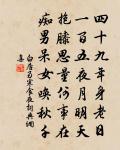 四十九年身老日
一百五夜月明天
抱膝思量何事在
痴男騃女喚秋千
白居易寒食夜詩興網
集